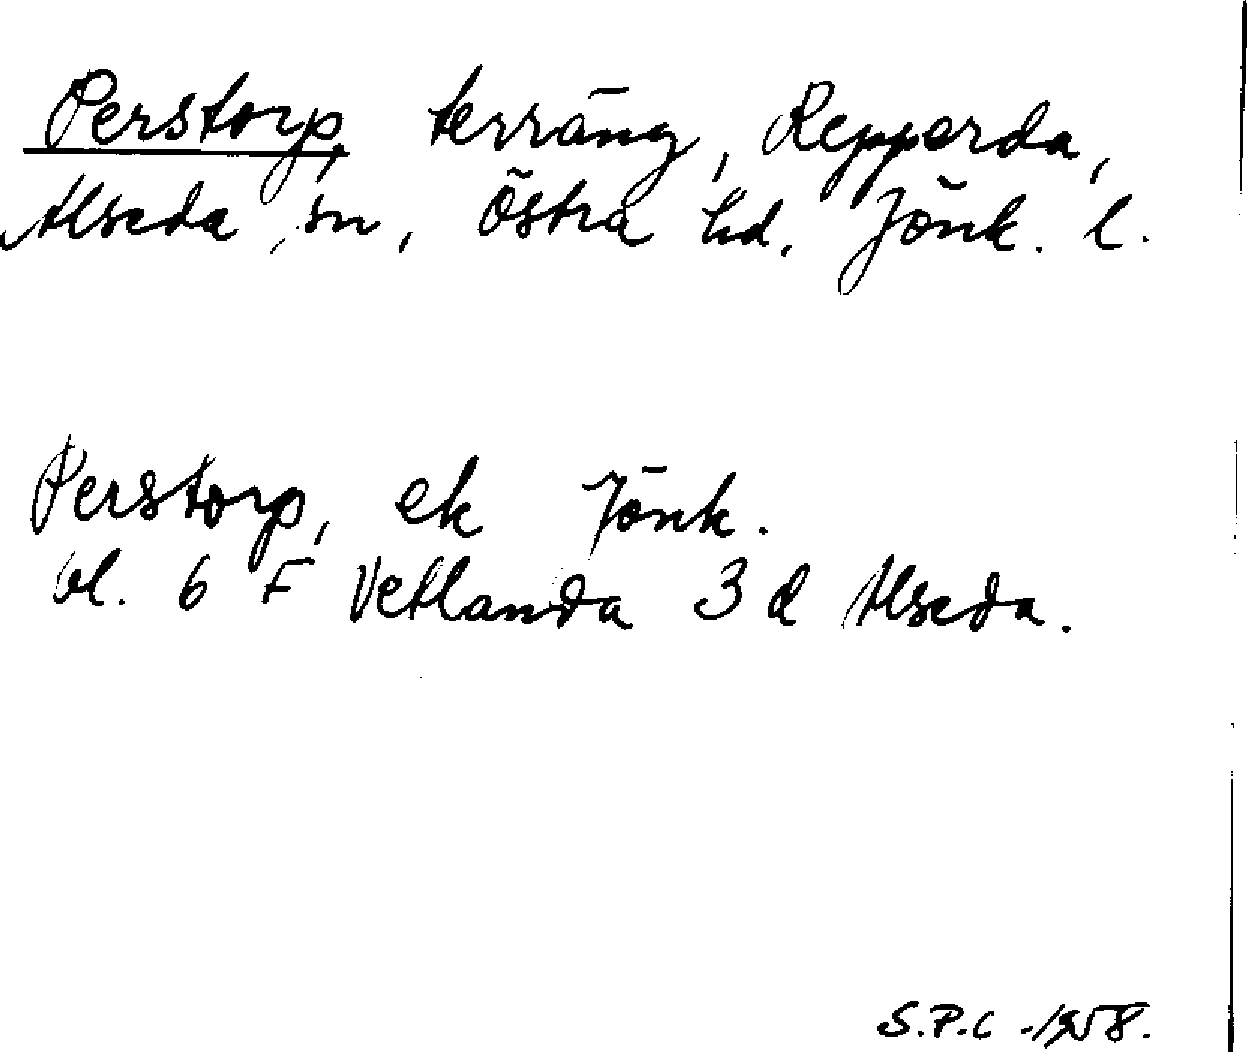 Perstorp, terräng, Repperda,
Alseda sn, Östra hd. Jönk. l.
Perstorp, ek Jönk.
bl. 6 F Vetlanda 3 d Alseda.
S.P.C -1958.